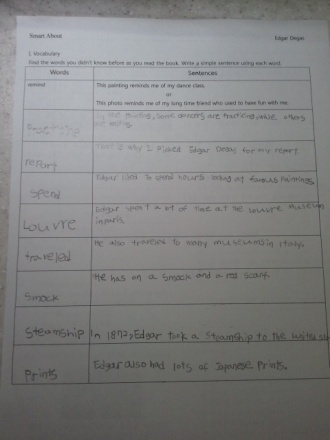 Smart About
Edgar Degas
I. Vocabulary
Find the words you didn't know before as you read the book. Write a simple sentence using each word.
Words
Sentences
remind
This painting reminds me of my dance class.
or
This photo reminds me of my long time friend who used to have fun with me.
In the painting, some dancers are practicing, while others
report
That is why I picked Edgar Degas for my report
spend
Edgar liked to spend hours looking at famous paintings
Louvre
Edgar spent a lot of time at the Louvre museum
in paris.
traveled
He also traveled to many museums in Italy.
Smock
He has on a smock and a red scarf
Steamship
In 1872, Edgar took a steamship to the
Prints
Edgar also had lots of Japanese Prints.